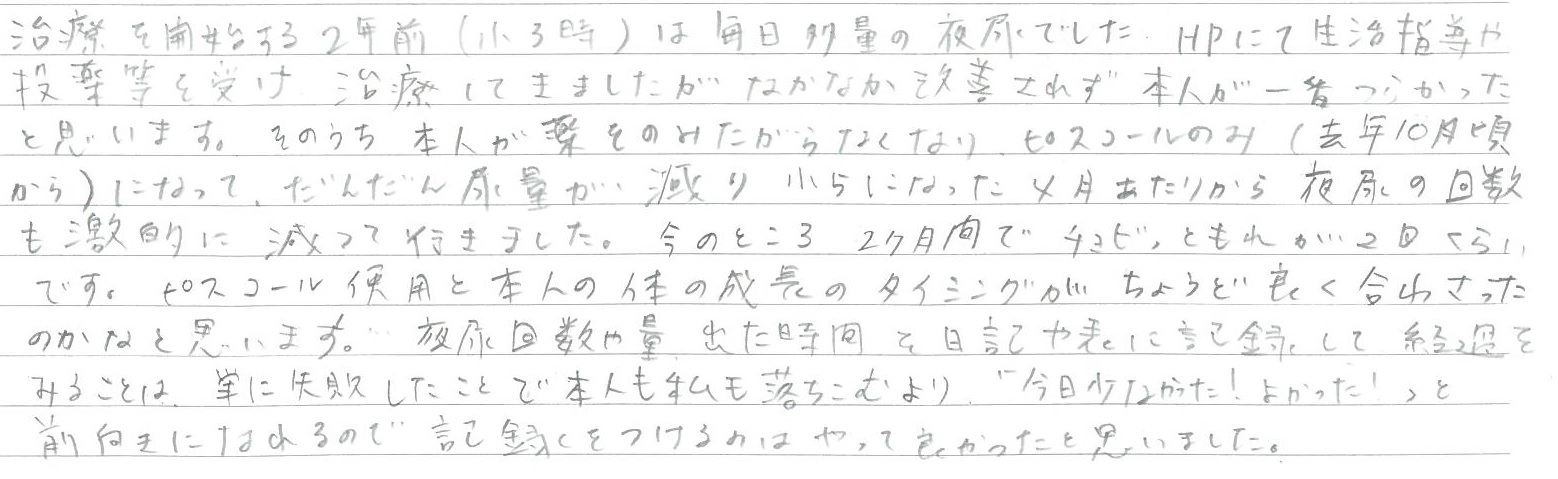 治療を開始する2年前(小3時)は毎日多量の夜尿でした。HPにて生活指導や
投薬等を受け、治療してきましたがなかなか改善されず本人が一番つらかった
と思います。そのうち本人が薬をのみたがらなくなり、ピスコールのみ(去年10月頃
から)になって、だんだん尿量が減り小5になった4月あたりから夜尿の回数
も激的に減って行きました。今のところ2ケ月間でチョビッともれが2回くらい
です。ピスコール使用と本人の体の成長のタイミングがちょうど良く合わさった
のかなと思います。夜尿回数や量、出た時間を日記や表に記録して経過を
みることは、単に失敗したことで本人も私も落ちこむより、「今日少なかった!よかった!」と
前向きになれるので記録をつけるのはやって良かったと思いました。